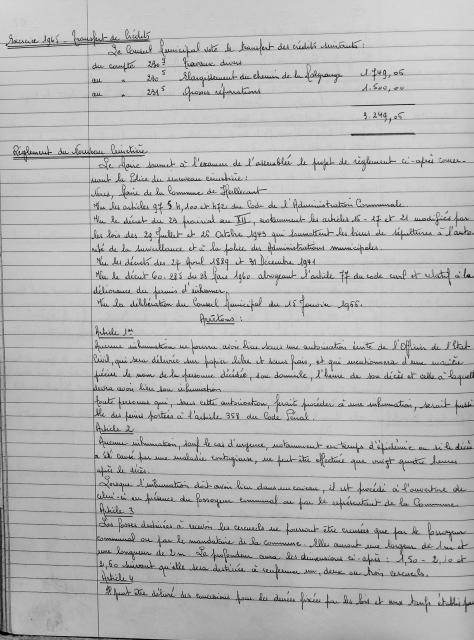 Exercice 1965 - Transfert de Crédits
Le Conseil Municipal vote le transfert des crédits suivants :
du compte 230 Travaux divers
au " 230 5 Elargissement du chemin de la 1.749,05
au " 231 5 Grosses réparations 1.500,00
3.249,05
Règlement du Nouveau Cimetière
Le Maire soumet à l'examen de l'assemblée le projet de règlement ci-après concer-
nant la Police du nouveau cimetière :
Nous, Maire de la Commune de
Vu les articles 97 § 4, 100 et 472 du Code de l'Administration Communale.
Vu le décret du 23 prairial an XII, notamment les articles 16 - 17 et 21 modifiés par
les lois des 29 Juillet et 26 Octobre 1943 qui soumettent les lieux de sépultures à l'auto-
rité de la surveillance et à la police des Administrations municipales.
Vu les décrets des 24 Avril 1889 et 31 Décembre 1941
Vu le décret 60.285 du 28 1960 abrogeant l'article 77 du code civil et relatif à la
délivrance du permis d'inhumer.
Vu la délibération du Conseil Municipal du 15 Janvier 1966.
Arrêtons :
Article 1er
Aucune inhumation ne pourra avoir lieu sans une autorisation écrite de l'Officier de l'Etat
Civil, qui sera délivrée sur papier libre et sans frais, et qui mentionnera d'une manière
précise le nom de la personne décédée, son domicile, l'heure de son décès et celle à laquelle
devra avoir lieu son inhumation
Toute personne qui, sans cette autorisation, ferait procéder à une inhumation, serait passi-
ble des peines portées à l'article 358 du Code Pénal.
Article 2
Aucune inhumation, sauf le cas d'urgence, notamment en temps d'épidémie ou si le décès
a été causé par une maladie contagieuse, ne peut être effectuée que vingt quatre heures
après le décès.
Lorsque l'inhumation doit avoir lieu dans un caveau, il est procédé à l'ouverture de
celui-ci en présence du fossoyeur communal ou par le représentant de la Commune.
Article 3
Les fosses destinées à recevoir les cercueils ne pourront être creusées que par le fossoyeur
communal ou par le mandataire de la commune. Elles auront une largeur de 1 m et
une longueur de 2 m. La profondeur aura les dimensions ci-après : 1,50 - 2,10 et
2,60 suivant qu'elle sera destinée à renfermer un, deux ou trois cercueils.
Article 4
Il peut être délivré des concessions pour les durées fixées par les lois et aux tarifs établis par